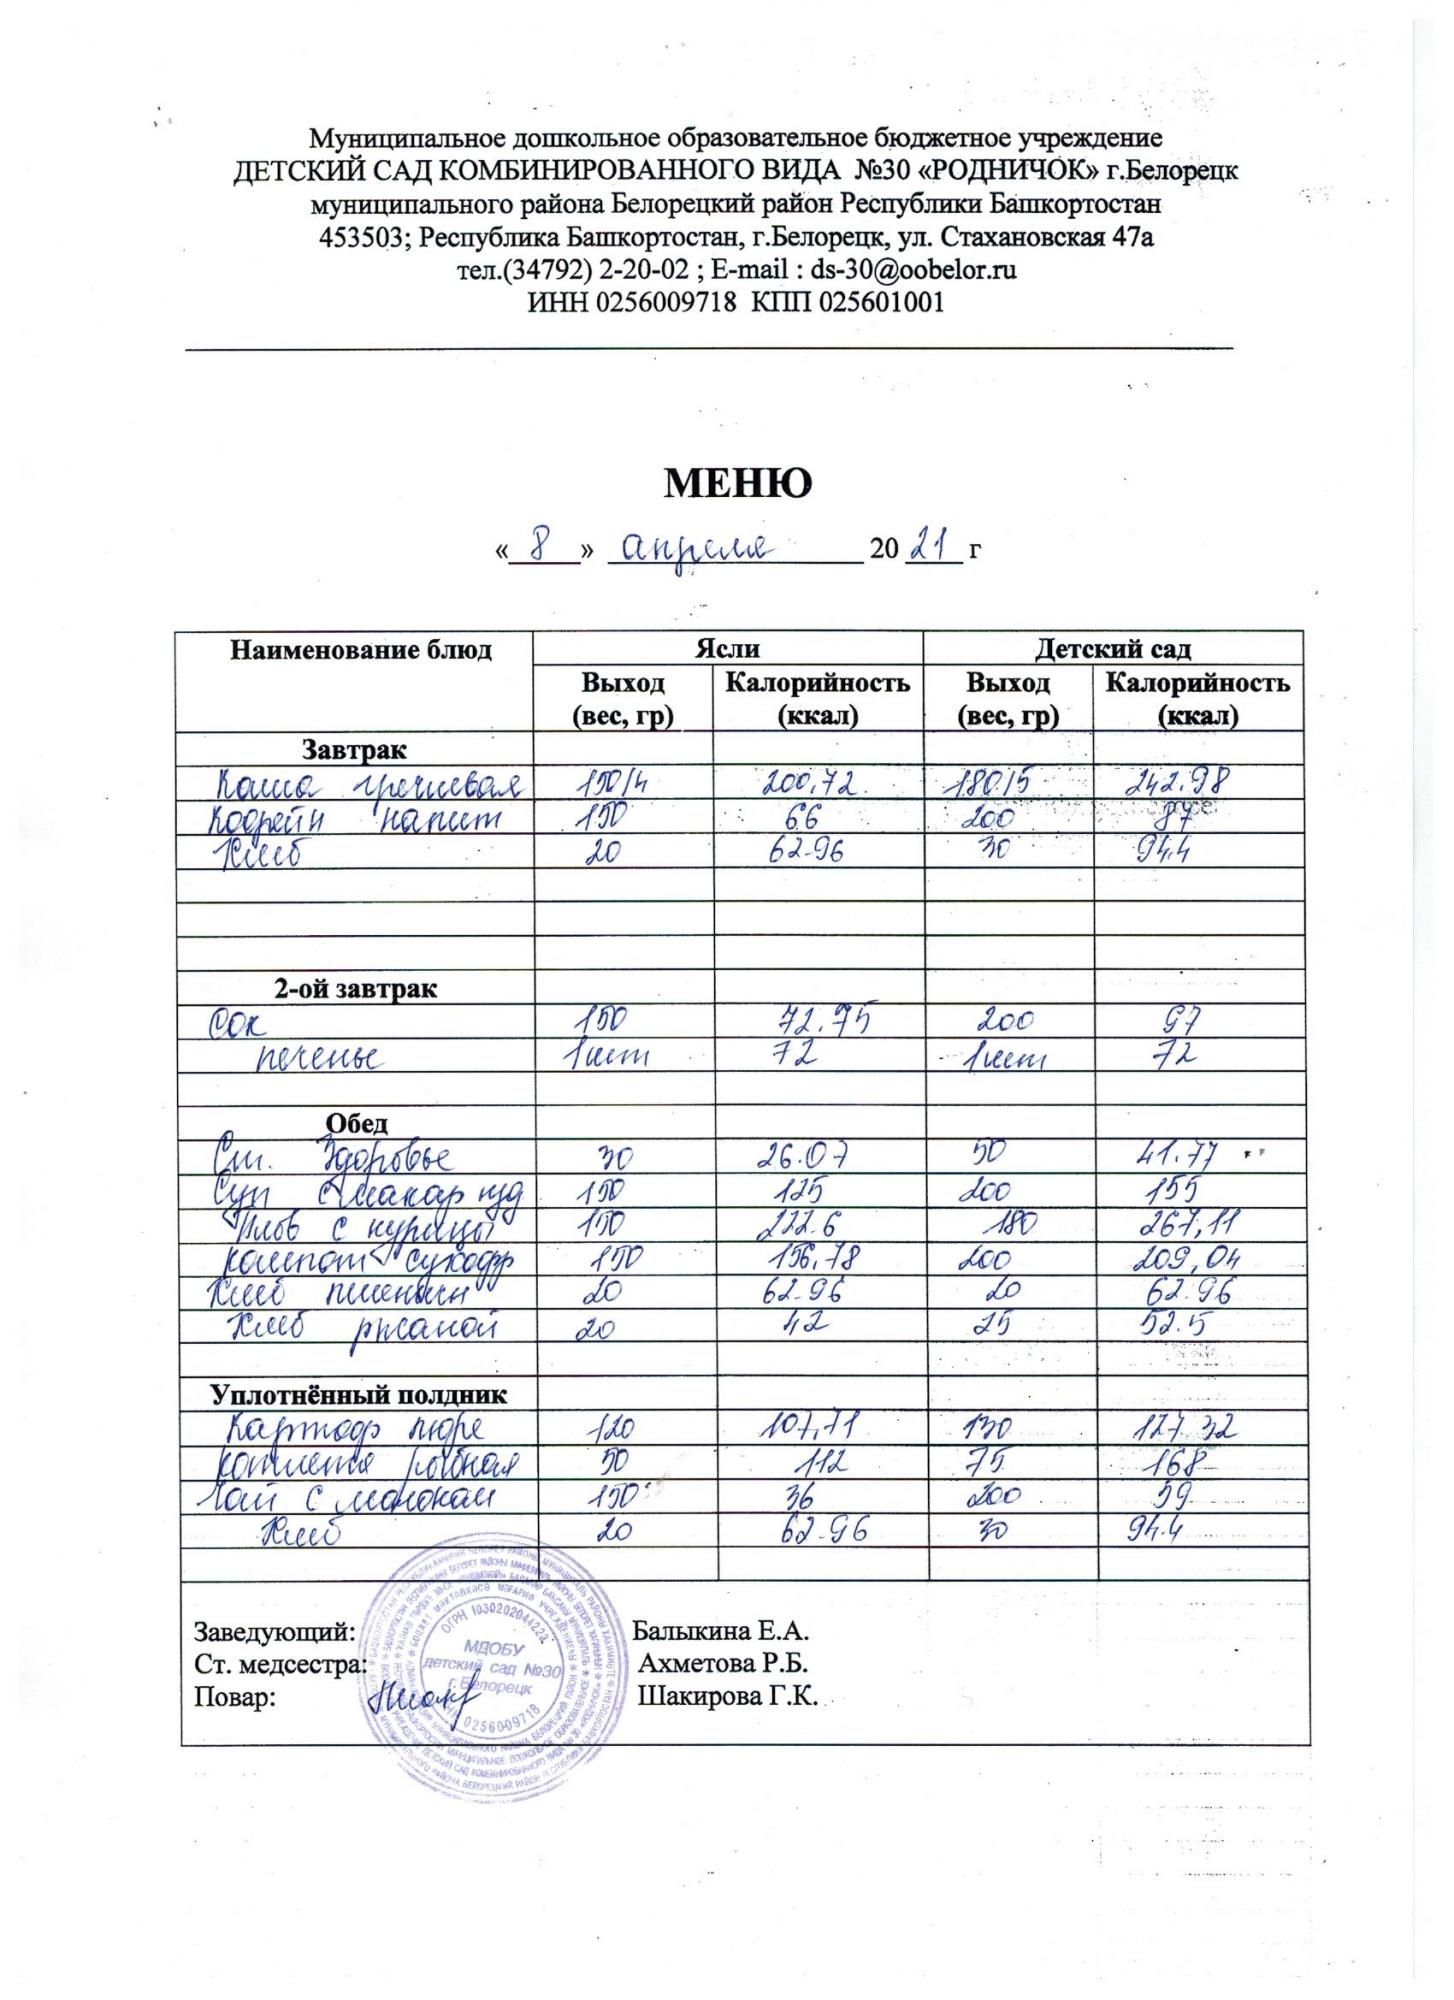 Муниципальное дошкольное образовательное бюджетное учреждение
ДЕТСКИЙ САД КОМБИНИРОВАННОГО ВИДА №30 «РОДНИЧОК» г.Белорецк
муниципального района Белорецкий район Республики Башкортостан
453503; Республика Башкортостан, г.Белорецк, ул. Стахановская 47а
тел.(34792) 2-20-02 ; E-mail : ds-30@oobelor.ru
ИНН 0256009718 КПП 025601001
МЕНЮ
« 8 » апреля 20 21 г
Наименование блюд Ясли Детский сад
Выход (вес, гр) Калорийность (ккал) Выход (вес, гр) Калорийность (ккал)
Завтрак
Каша гречневая 150/4 200,72 180/5 242.98
Кофейн напит 150 66 200 87
Хлеб 20 62-96 30 94,4
2-ой завтрак
Сок 150 72.75 200 97
печенье 1шт 72 1шт 72
Обед
Сал. Здоровье 30 26.07 50 41.77
Суп с макар изд 150 125 200 155
Плов с курицы 150 222.6 180 267,11
Компот сухофр 150 156,78 200 209,04
Хлеб пшеничн 20 62-96 20 62.96
Хлеб ржаной 20 42 25 52.5
Уплотнённый полдник
Картоф пюре 120 107,71 130 127.32
котлета рыбная 50 112 75 168
Чай с молоком 150 36 200 59
Хлеб 20 62-96 30 94.4
Заведующий: Балыкина Е.А.
Ст. медсестра: Ахметова Р.Б.
Повар: Шакирова Г.К.
ОГРН 1030202044222
МДОБУ
детский сад №30
г.Белорецк
ИНН 0256009718